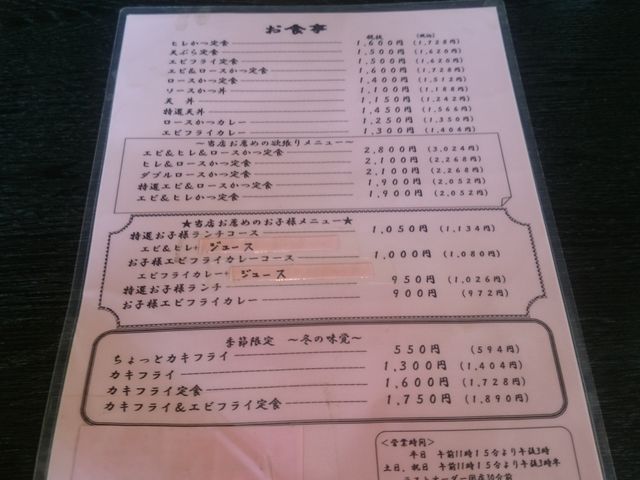 お食事
税抜 (税込)
ヒレかつ定食 1,600円 (1,728円)
天ぷら定食 1,500円 (1,620円)
エビフライ定食 1,500円 (1,620円)
エビ&ロースかつ定食 1,600円 (1,728円)
ロースかつ定食 1,400円 (1,512円)
ソースかつ丼 1,100円 (1,188円)
天丼 1,150円 (1,242円)
特選天丼 1,450円 (1,566円)
ロースかつカレー 1,250円 (1,350円)
エビフライカレー 1,300円 (1,404円)
～当店お薦めの欲張りメニュー～
エビ&ヒレ&ロースかつ定食 2,800円 (3,024円)
ヒレ&ロースかつ定食 2,100円 (2,268円)
ダブルロースかつ定食 2,100円 (2,268円)
特選エビ&ロースかつ定食 1,900円 (2,052円)
エビ&ヒレかつ定食 1,900円 (2,052円)
★当店お薦めのお子様メニュー★
特選お子様ランチコース 1,050円 (1,134円)
エビ&ヒレ+ ジュース
お子様エビフライカレーコース 1,000円 (1,080円)
エビフライカレー+ ジュース
特選お子様ランチ 950円 (1,026円)
お子様エビフライカレー 900円 (972円)
季節限定 ～冬の味覚～
ちょっとカキフライ 550円 (594円)
カキフライ 1,300円 (1,404円)
カキフライ定食 1,600円 (1,728円)
カキフライ&エビフライ定食 1,750円 (1,890円)
<営業時間>
平日 午前11時15分より午後3時
土日、祝日 午前11時15分より午後3時半
ラストオーダー閉店30分前